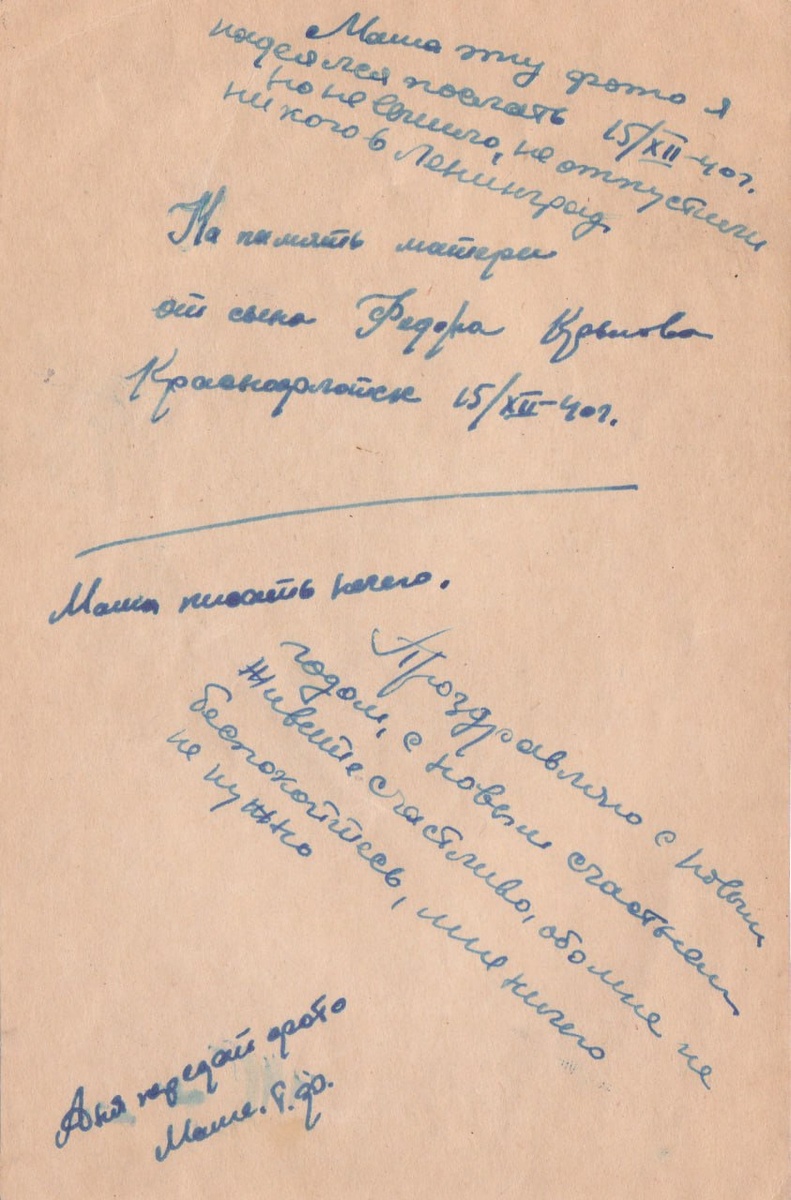 Маша эту фото я
надеялся послать 15/XII-40г.
но не вышло, не отпустили
никого в Ленинград
На память матери
от сына Федора Крылова
Красноармейск 15/XII-40г.
Маша писать нечего.
Проздравляю с новым
годом, с новым счастьем
Живите счастливо, обо мне не
беспокойтесь, мне ничего
не нужно
Аня передай фото
Маше.